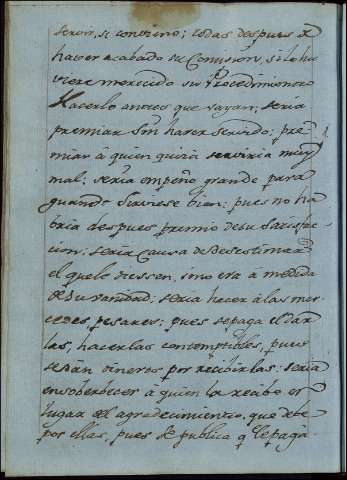 servir, si convino; todas despues de
haver acabado su Comision, si lo hu
viere merecido su Procedimiento
Hacerlo antes que vayan; seria
premiar sin haver servido; pre=
miar à quien quizà serviria muy
mal; seria empeño grande para
quando sirviese bien; pues no ha
bria despues premio de su satisfac-
cion: seria Causa de desestimar
el que le diessen, sino era à medida
de su vanidad: seria hacer à las mer-
cedes pesares; pues se paga el dar
las, hacerlas contemptibles, pues
se dàn dineros por recibirlas: seria
ensoberbecer à quien la recibe en
lugar del agradecimiento, que debe
por ellas, pues se publica q̃ se le paga